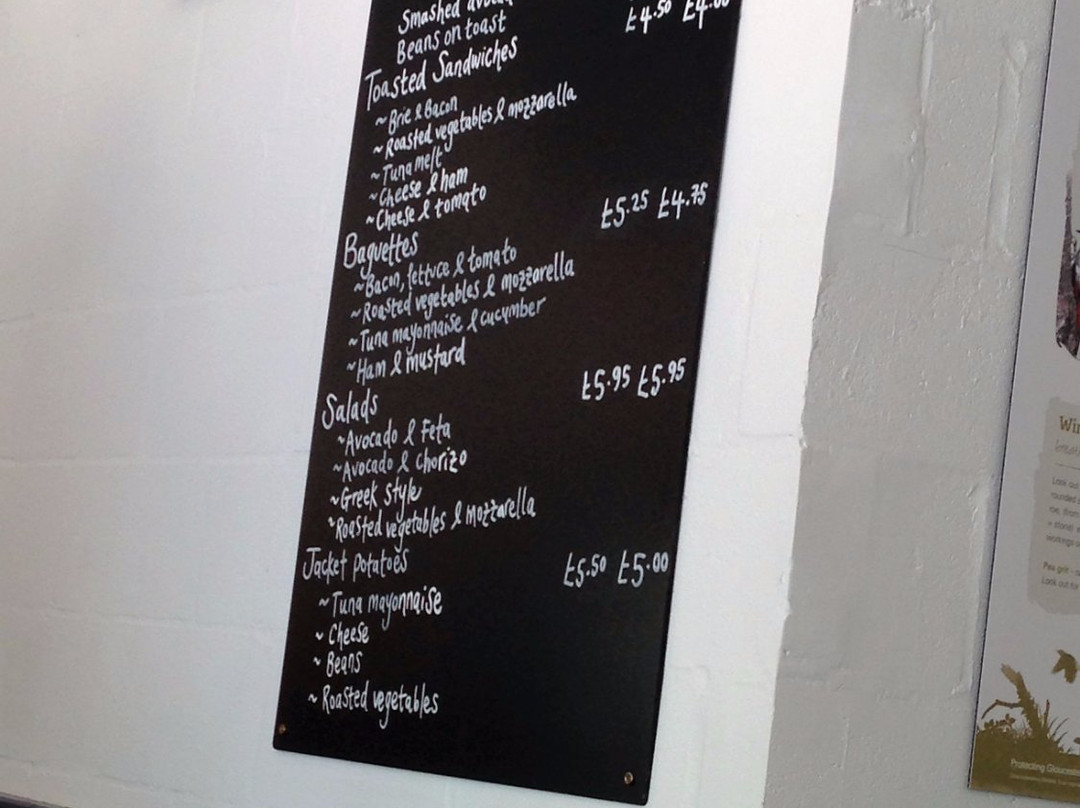 Smashed
Beans on toast £4.50 £4.00
Toasted Sandwiches
~Brie & Bacon
~Roasted vegetables & mozzarella
~Tuna melt
~Cheese & ham
~Cheese & tomato
Baguettes £5.25 £4.75
~Bacon, lettuce & tomato
~Roasted vegetables & mozzarella
~Tuna mayonnaise & cucumber
~Ham & mustard
Salads £5.95 £5.95
~Avocado & Feta
~Avocado & chorizo
~Greek style
~Roasted vegetables & mozzarella
Jacket potatoes £5.50 £5.00
~Tuna mayonnaise
~Cheese
~Beans
~Roasted vegetables
Look out
rounded
workings
Pea grit -
Look out for
Protecting